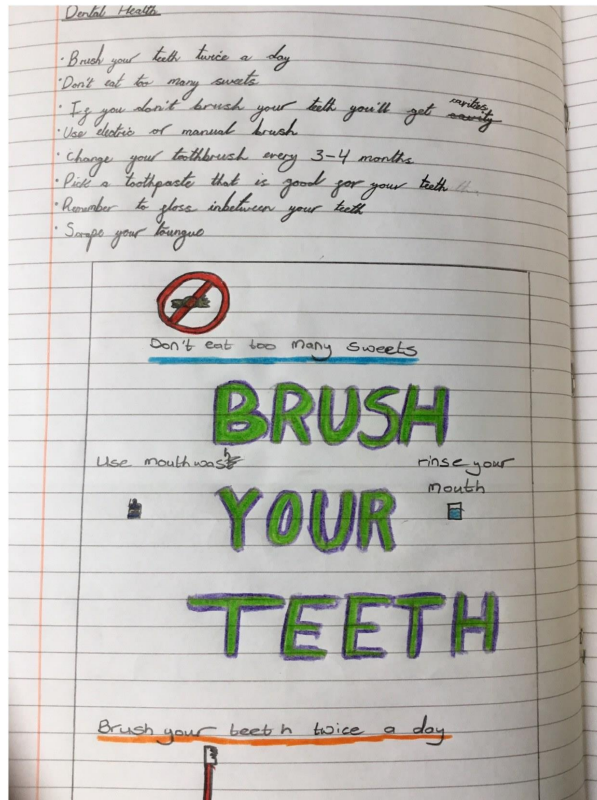 Dental Health
· Brush your teeth twice a day
· Don't eat too many sweets
· If you don't brush your teeth you'll get cavities
· Use electric or manual brush
· Change your toothbrush every 3-4 months
· Pick a toothpaste that is good for your teeth
· Remember to floss inbetween your teeth
· Scrape your toungue
Don't eat too many sweets
BRUSH
Use mouthwash
rinse your
mouth
YOUR
TEETH
Brush your teeth twice a day